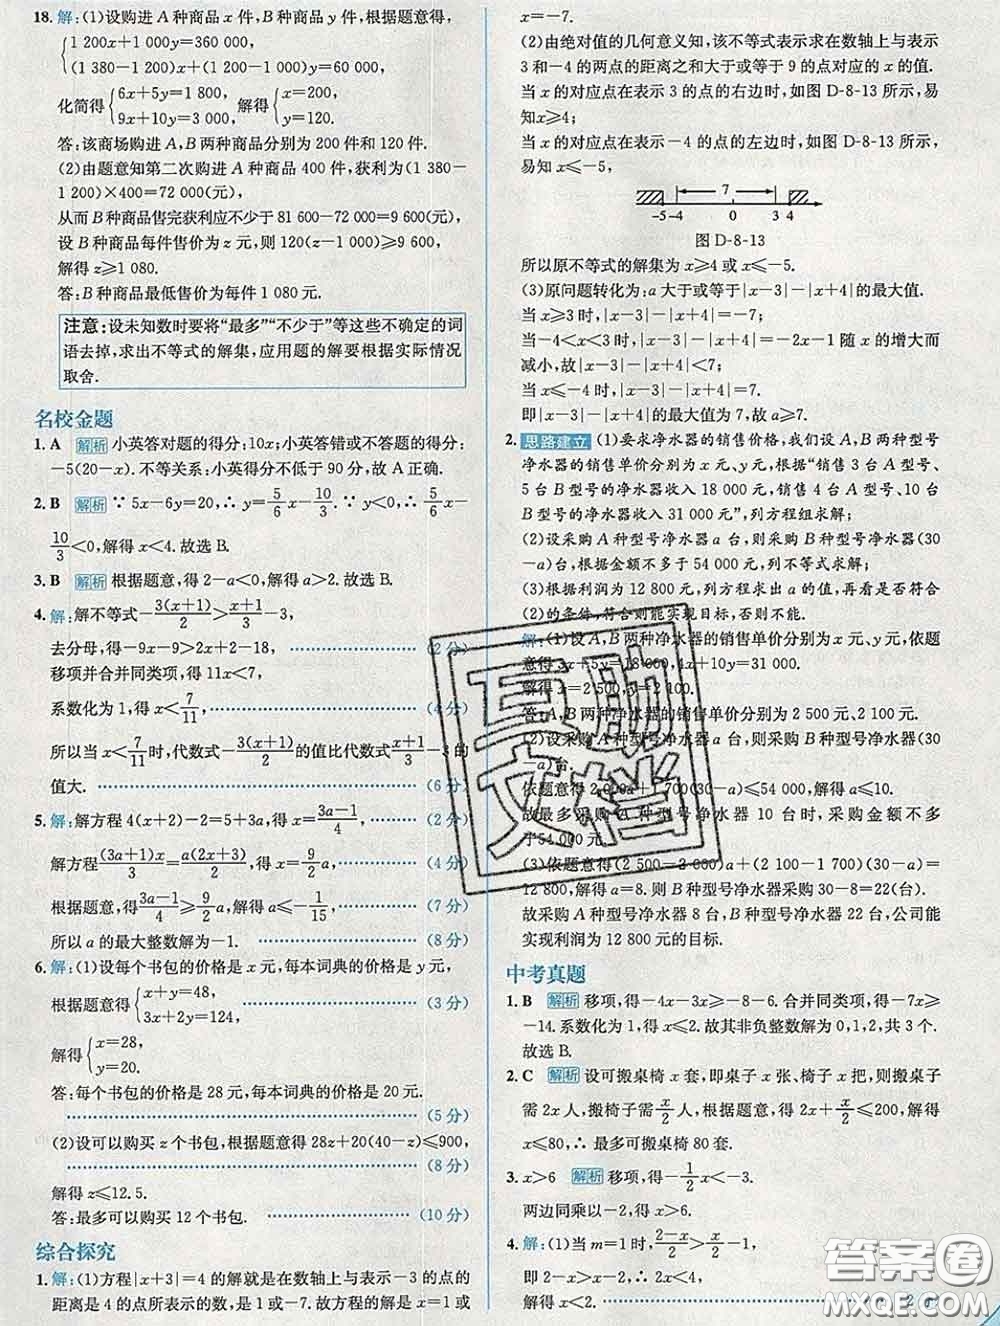 18. 解:(1)设购进A种商品x件,B种商品y件,根据题意得,
{1 200x+1 000y=360 000,
(1 380-1 200)x+(1 200-1 000)y=60 000.
化简得{6x+5y=1 800, 9x+10y=3 000, 解得{x=200, y=120.
答:该商场购进A,B两种商品分别为200件和120件.
(2)由题意知第二次购进A种商品400件,获利为(1 380-
1 200)×400=72 000(元),
从而B种商品售完获利应不少于81 600-72 000=9 600(元),
设B种商品每件售价为z元,则120(z-1 000)≥9 600,
解得z≥1 080.
答:B种商品最低售价为每件1 080元.
注意:设未知数时要将“最多”“不少于”等这些不确定的词
语去掉,求出不等式的解集,应用题的解要根据实际情况
取舍.
名校金题
1. A 解析 小英答对题的得分:10x;小英答错或不答题的得分:
-5(20-x).不等关系:小英得分不低于90分,故A正确.
2. B 解析 ∵5x-6y=20,∴y=5/6x-10/3.∵y<0,∴5/6x-
10/3<0,解得x<4.故选B.
3. B 解析 根据题意,得2-a<0,解得a>2.故选B.
4. 解:解不等式-3(x+1)/2>x+1/3-3,
去分母,得-9x-9>2x+2-18, (2分)
移项并合并同类项,得11x<7,
系数化为1,得x<7/11, (4分)
所以当x<7/11时,代数式-3(x+1)/2的值比代数式x+1/3-3的
值大. (6分)
5. 解:解方程4(x+2)-2=5+3a,得x=3a-1/4, (2分)
解方程(3a+1)x/3=a(2x+3)/2,得x=9/2a, (4分)
根据题意,得3a-1/4≥9/2a,解得a≤-1/15, (7分)
所以a的最大整数解为-1. (8分)
6. 解:(1)设每个书包的价格是x元,每本词典的价格是y元,
根据题意得{x+y=48, 3x+2y=124, (3分)
解得{x=28, y=20.
答:每个书包的价格是28元,每本词典的价格是20元.
(5分)
(2)设可以购买z个书包,根据题意得28z+20(40-z)≤900,
(8分)
解得z≤12.5.
答:最多可以购买12个书包. (10分)
综合探究
1. 解:(1)方程|x+3|=4的解就是在数轴上与表示-3的点的
距离是4的点所表示的数,是1或-7.故方程的解是x=1或
x=-7.
(2)由绝对值的几何意义知,该不等式表示求在数轴上与表示
3和-4的两点的距离之和大于或等于9的点对应的x的值.
当x的对应点在表示3的点的右边时,如图D-8-13所示,易
知x≥4;
当x的对应点在表示-4的点的左边时,如图D-8-13所示,
易知x≤-5,
7
-5 -4 0 3 4
图D-8-13
所以原不等式的解集为x≥4或x≤-5.
(3)原问题转化为:a大于或等于|x-3|-|x+4|的最大值.
当x≥3时,|x-3|-|x+4|=-7;
当-4<x<3时,|x-3|-|x+4|=-2x-1随x的增大而
减小,故|x-3|-|x+4|<7;
当x≤-4时,|x-3|-|x+4|=7.
即|x-3|-|x+4|的最大值为7,故a≥7.
2. 思路建立 (1)要求净水器的销售价格,我们设A,B两种型号
净水器的销售单价分别为x元、y元,根据“销售3台A型号、
5台B型号的净水器收入18 000元,销售4台A型号、10台
B型号的净水器收入31 000元”,列方程组求解;
(2)设采购A种型号净水器a台,则采购B种型号净水器(30
-a)台,根据金额不多于54 000元,列不等式求解;
(3)根据利润为12 800元,列方程求出a的值,再看是否符合
(2)的条件,符合则能实现目标,否则不能.
解:(1)设A,B两种净水器的销售单价分别为x元、y元,依题
意得3x+5y=18 000,4x+10y=31 000.
解得x=2 500,y=2 100.
答:A,B两种净水器的销售单价分别为2 500元、2 100元.
(2)设采购A种型号净水器a台,则采购B种型号净水器(30
-a)台.
依题意得2 000a+1 700(30-a)≤54 000,解得a≤10.
故最多采购A种型号净水器10台时,采购金额不多
于54 000元.
(3)依题意得(2 500-2 000)a+(2 100-1 700)(30-a)=
12 800,解得a=8.则B种型号净水器采购30-8=22(台).
故采购A种型号净水器8台,B种型号净水器22台,公司能
实现利润为12 800元的目标.
中考真题
1. B 解析 移项,得-4x-3x≥-8-6.合并同类项,得-7x≥
-14.系数化为1,得x≤2.故其非负整数解为0,1,2,共3个.
故选B.
2. C 解析 设可搬桌椅x套,即桌子x张、椅子x把,则搬桌子
需2x人,搬椅子需x/2人,根据题意,得2x+x/2≤200,解得
x≤80,∴最多可搬桌椅80套.
3. x>6 解析 移项,得-1/2x<-3.
两边同乘以-2,得x>6.
4. 解:(1)当m=1时,2-x/2>x/2-1,
即2-x>x-2,
解得x<2.
互助文档
答案圈
MXQE.COM